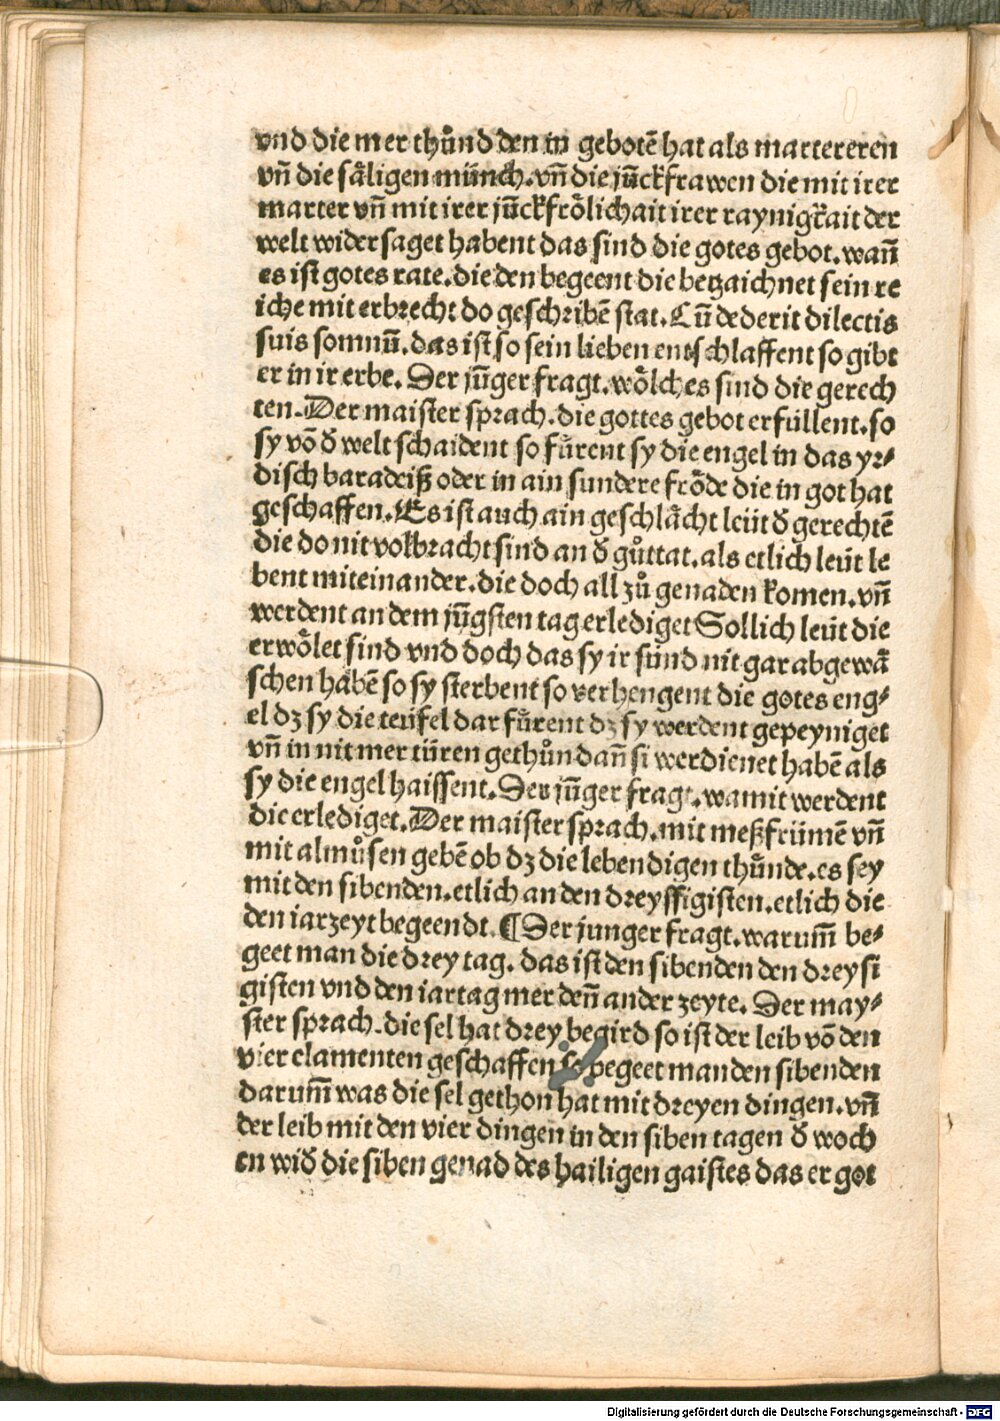 vnd die mer thůnd den in gebotē hat als martereren
vñ die såligen münch. vñ die jūckfrawen die mit irer
marter vñ mit irer jūckfrölichait irer raynigkait der
welt widersaget habent das sind die gotes gebot. wañ
es ist gotes rate. die den begeent die betzaichnet sein re
iche mit erbrecht do geschribē stat. Cū dederit dilectis
suis somnū. das ist so sein lieben entschlaffent so gibt
er in ir erbe. Der jūger fragt. wölches sind die gerech
ten. Der maister sprach. die gottes gebot erfüllent. so
sy vō d̄ welt schaident so fůrent sy die engel in das yr⸗
disch baradeiß oder in ain sundere fröde die in got hat
geschaffen. Es ist auch ain geschlåcht leüt d̄ gerechtē
die do nit volbracht sind an d̄ gůttat. als etlich leüt le
bent miteinander. die doch all zů genaden komen. vñ
werdent an dem jūgsten tag erlediget Sollich leüt die
erwölet sind vnd doch das sy ir sünd nit gar abgewå
schen habē so sy sterbent so verhengent die gotes eng⸗
el dz sy die teüfel dar fůrent dz sy werdent gepeyniget
vñ in nit mer türen gethůn dañ si werdienet habē als
sy die engel haissent. Der jūger fragt. wamit werdent
die erlediget. Der maister sprach. mit meßfrümē vñ
mit almůsen gebē ob dz die lebendigen thůnde. es sey
mit den sibenden. etlich an den dreyssigisten. etlich die
den iarzeyt begeendt. ¶ Der junger fragt. warum̄ be⸗
geet man die drey tag. das ist den sibenden den dreysi
gisten vnd den iartag mer deñ ander zeyte. Der may⸗
ster sprach. die sel hat drey begird so ist der leib vō den
vier elamenten geschaffen so begeet man den sibenden
darum̄ was die sel gethon hat mit dreyen dingen. vñ
der leib mit den vier dingen in den siben tagen d̄ woch
en wid̄ die siben genad des hailigen gaistes das er got
Digitalisierung gefördert durch die Deutsche Forschungsgemeinschaft - DFG